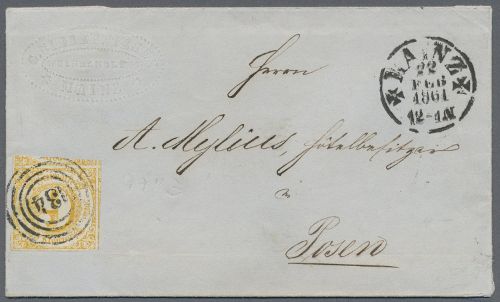 MAINZ
22
FEB
1861
12-1N
Herrn
A. Mylius, Hôtelbesitzer
in
Posen
134